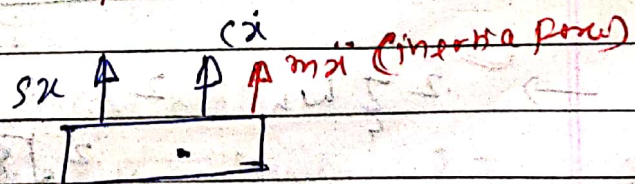 cẋ
sx mẍ (inertia force)